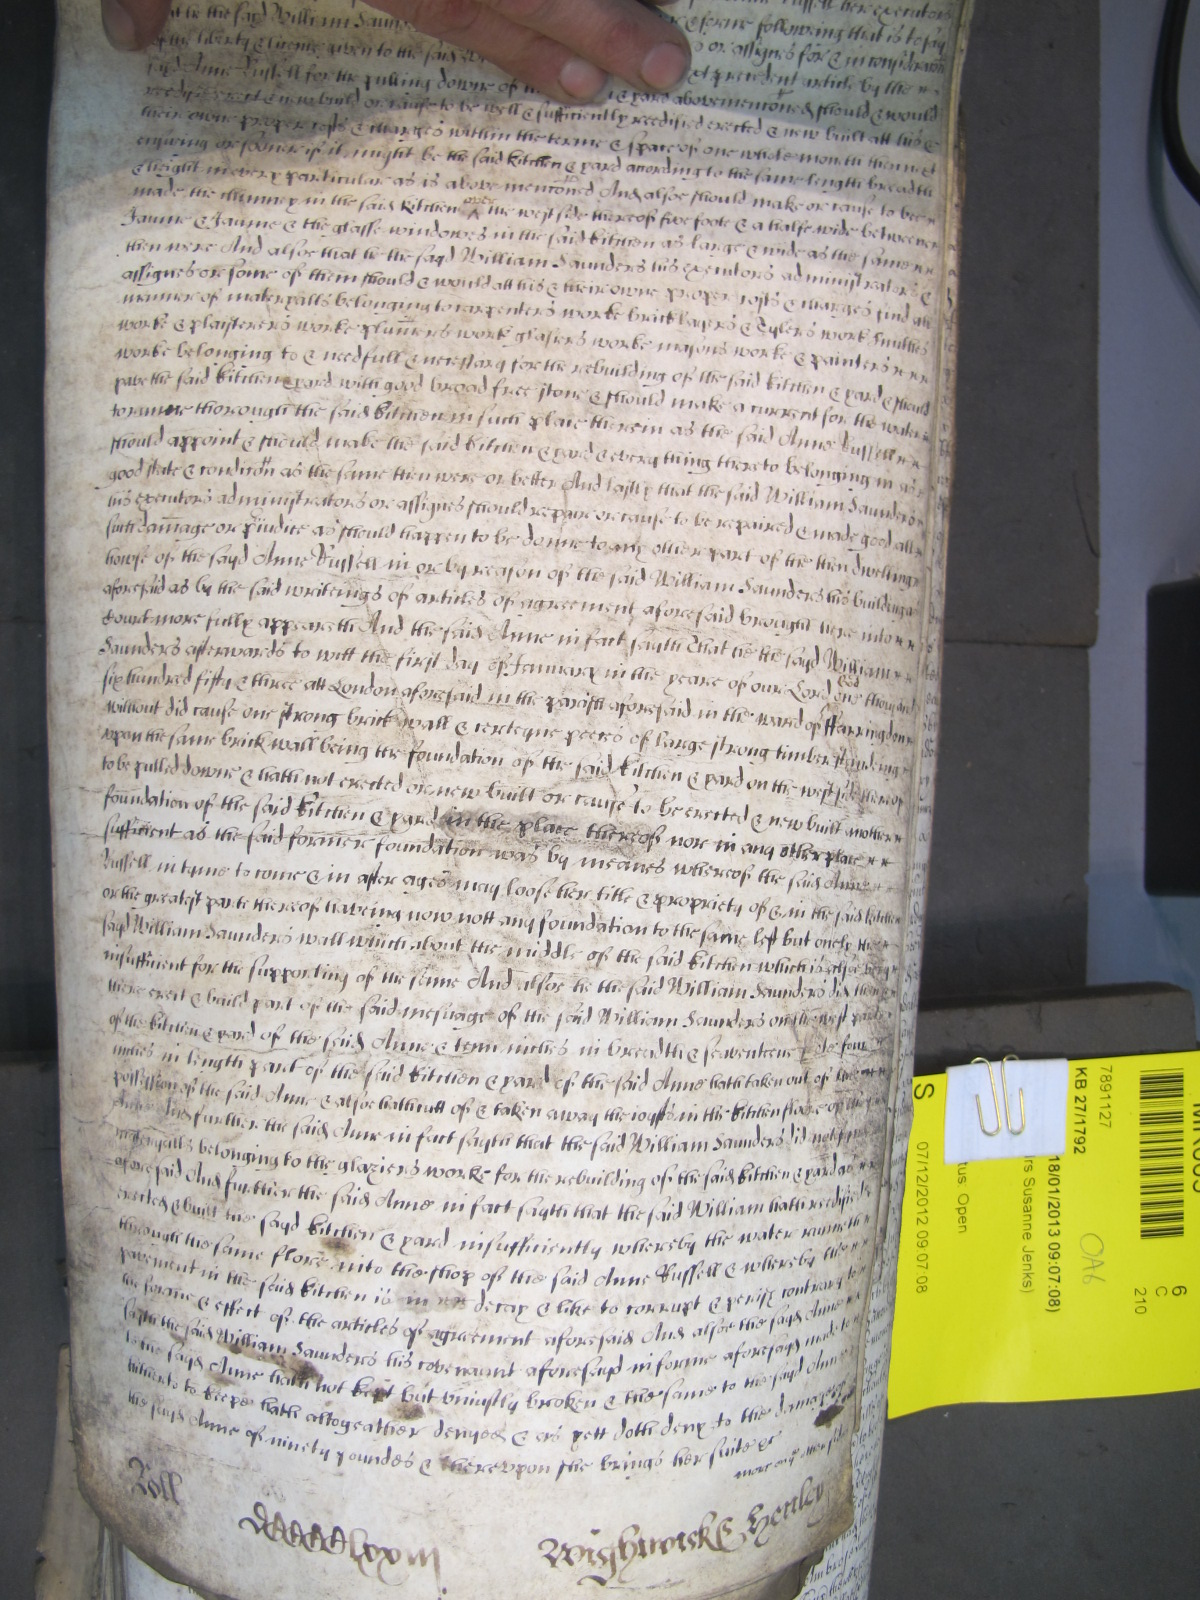 that he the sayd William Saunders
forme following that is to say
of the liberty & licence given to the said
or assignes for & in consideration
sayd Anne Russell for the pulling downe of
next precedent article by the
& yard abovementioned should & would
reedifie erect & new build or cause to be well & sufficiently reedified erected & new built att his &
their owne proper costs & charges within the terme & space of one whole month then next
ensuing or sooner if it might be the said kitchen & yard according to the same length breadth
& height in every particular as is above mentioned And alsoe should make or cause to bee
made the chimney in the said kitchen over the west side thereof five foote & a halfe wide betweene
Jaume & Jaume & the glasse windowes in the said kitchen as large & wide as the same
then were And alsoe that he the sayd William Saunders his executors administrators &
assignes or some of them should & would att his & their owne proper costs & charges find all
manner of materyalls belonging to carpenters worke bricklayers & Tylers work Smithes
worke & plaisterers worke plumers work glasiers worke masons worke & painters
worke belonging to & needfull & necessary for the rebuilding of the said kitchen & yard & should
pave the said kitchen & yard with good broad free stone & should make a current for the water
to runne thorough the said kitchen in such place therein as the said Anne Russell
should appoint & should make the said kitchen & yard & every thing thereto belonging in as
good state & condicon as the same then were or better And lastly that the said William Saunders
his executors administrators or assignes should repaire or cause to be repaired & made good all
such damage or prejudice as should happen to be donne to any other part of the then dwelling
howse of the sayd Anne Russell in or by reason of the said William Saunders his building
aforesaid as by the said writeings of articles of agreement aforesaid brought here into
Court more fully appeareth And the said Anne in fact sayth that he the sayd William
Saunders afterwards to witt the first day of January in the yeare of our Lord God one thousand
six hundred fifty & three att London aforesaid in the parish aforesaid in the ward of Farringdon
without did cause one strong brick wall & certeyne peeces of large strong timber standing
upon the same brick wall being the foundation of the said kitchen & yard on the west side thereof
to be pulled downe & hath not erected or new built or cause to be erected & new built another
foundation of the said kitchen & yard in the place thereof nor in any other place
sufficient as the said former foundation was by meanes whereof the said Anne
Russell in tyme to come & in after ages may loose her title & propriety of & in the said kitchen
or the greatest parte thereof haveing now nott any foundation to the same left but onely the
sayd William Saunders wall which about the middle of the said kitchen which is alsoe very
insufficient for the supporting of the same And alsoe he the said William Saunders did then &
there erect & build part of the said mesuage of the said William Saunders on the west parte
of the kitchen & yard of the said Anne & tenn inches in breadth & seventeene foote four
inches in length part of the said kitchen & yard of the said Anne hath taken out of the
possession of the said Anne & alsoe hath cutt of & taken away the joysts in the kitchen floore of the
Anne And further the said Anne in fact sayth that the said William Saunders did not find
materyalls belonging to the glaziers worke for the rebuilding of the said kitchen & yard as
aforesaid And further the said Anne in fact sayth that the said William hath reedifyed
erected & built the sayd kitchen & yard insufficiently whereby the water runneth
through the same floore into the shop of the said Anne Russell & whereby the
pavement in the said kitchen is in decay & like to corrupt & perish contrary to
the forme & effect of the articles of agreement aforesaid And alsoe the sayd Anne
saith the said William Saunders his covenant aforesayd in forme aforesayd made to
to the sayd Anne hath not kept but uniustly broken & the same to the sayd Anne
hitherto to keepe hath altogeather denyed & as yett doth deny to the damage of
the sayd Anne of ninety poundes & thereupon she brings her suite &c
Roll
Wightwick & Hetley
S 07/12/2012 09:07:08
Open
rs Susanne Jenks)
18/01/2013 09:07:08)
KB 27/1792
7891127
OA6
6
C
210